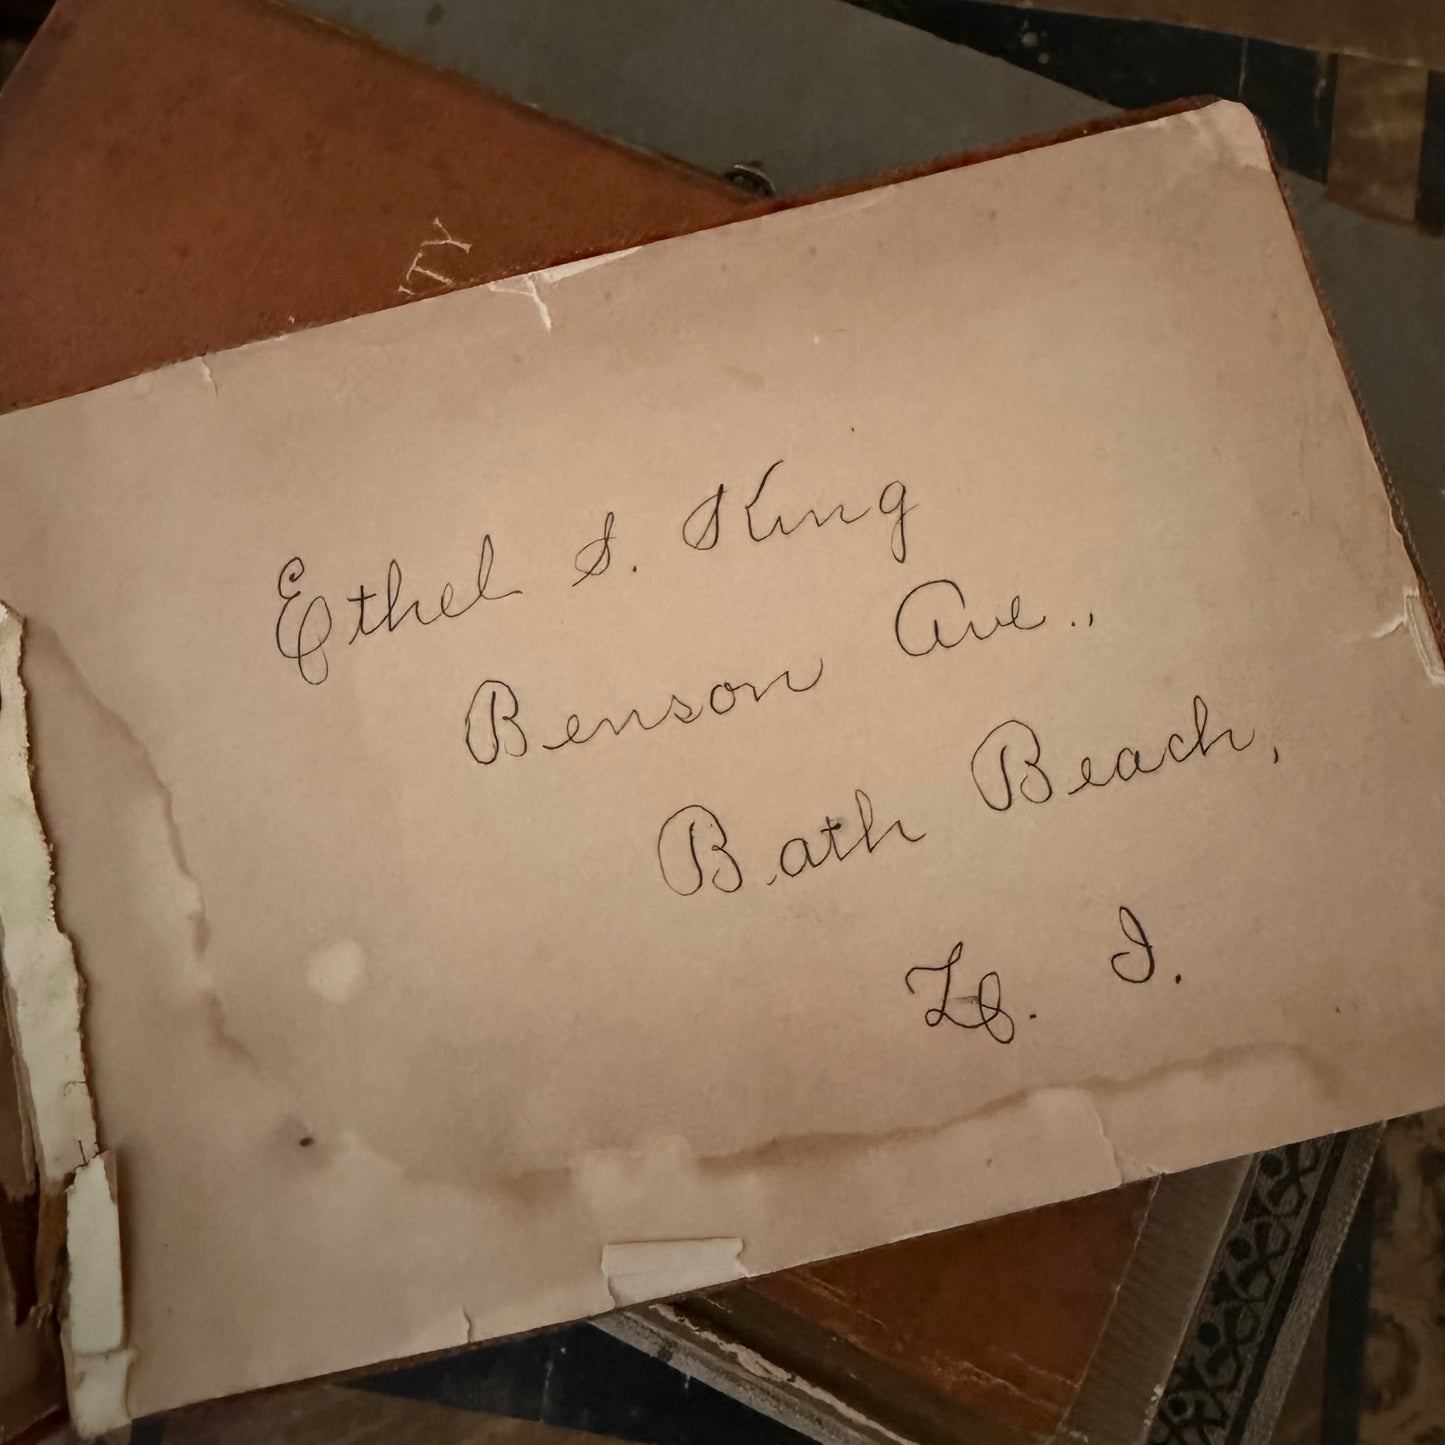 TY
Ethel S. King
Benson Ave.,
Bath Beach,
L. I.